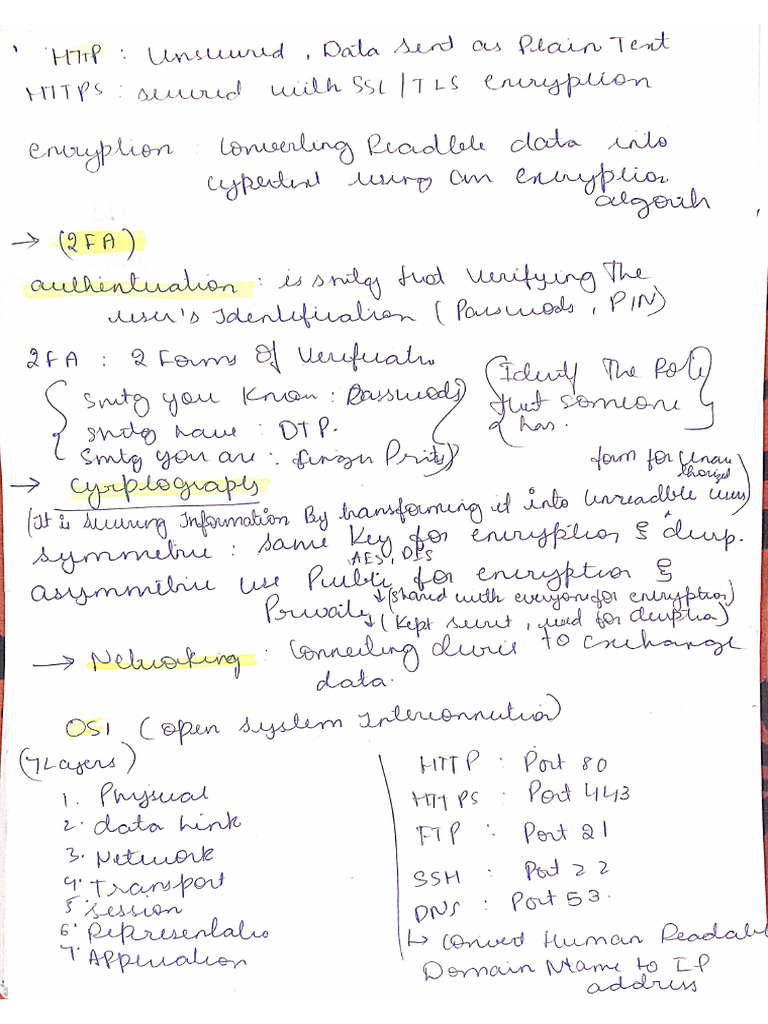 HTTP : Unsecured , Data sent as Plain Text
HTTPS : secured with SSL / TLS encryption
encryption : Converting Readble data into
cypertext using an encryption
algorith
→ (2FA)
authentication : is smtg that verifying the
user's Identification ( Passwords , PIN)
2FA : 2 Forms Of Verificatio
Smtg you Know : Passwords
smtg have : OTP.
Smtg you are : finger Prints
(Identify The Role
that someone
has.
→ Cyrptography
(It is securing Information By transforming it into Unreadble form for Unauthorized users)
symmetric : same Key for encryption & decrp.
AES, DES
asymmetric use Public for encryption &
↓ (shared with everyone for encryption)
Private
↓ (Kept secret , used for decryption)
→ Networking : Connecting device to exchange
data.
OSI ( Open System Interconnection)
(7 Layers)
1. Physical
2. data Link
3. Network
4. Transport
5. Session
6. Representatio
7. Application
HTTP : Port 80
HTTPS : Port 443
FTP : Port 21
SSH : Port 22
DNS : Port 53.
↳ Convert Human Readable
Domain Name to IP
address